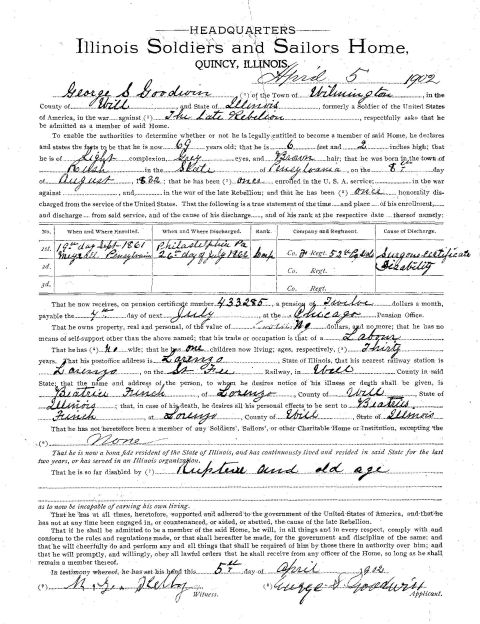 HEADQUARTERS
Illinois Soldiers and Sailors Home,
QUINCY, ILLINOIS,
April 5 1902
George S Goodwin (¹) of the Town of Wilmington, in the
County of Will and State of Illinois, formerly a Soldier of the United States
of America, in the war against (²) The Late Rebelion, respectfully asks that he
be admitted as a member of said Home.
To enable the authorities to determine whether or not he is legally entitled to become a member of said Home, he declares
and states the facts to be that he is now 69 years old; that he is 6 feet and 2 inches high; that
he is of Light complexion, Grey eyes, and Brown hair; that he was born in the town of
in the State of Pensylvania, on the 8th day
of August, that he has been (³) once enrolled in the U. S. A. service;
against and in the war of the late Rebellion; and that he has been (⁴) once honorably dis-
charged from the service of the United States. That the following is a true statement of the time and place of his enrollment,
and discharge from said service, and of the cause of his discharge, and of his rank at the respective dates thereof namely:
No. When and Where Enrolled. When and Where Discharged. Rank. Company and Regiment. Cause of Discharge.
1st. 19th day Sept 1861 Pensylvain Philadelphia Pa 26th day of July 1862 Corp Co. Regt. 52nd Surgons certificate Disability
2d. Co. Regt.
3d. Co. Regt.
That he now receives, on pension certificate number 433285, a pension of Twelve dollars a month,
payable the 4th day of next July at the Chicago Pension Office.
That he owns property, real and personal, of the value of No dollars, and no more; that he has no
means of self-support other than the above named; that his trade or occupation is that of a Labour
That he has (⁵) no wife; that he has one children now living; ages, respectively, (⁶) Thirty
years. That his postoffice address is Lorenzo, State of Illinois, that his nearest railway station is
Lorenzo, on the Railway, in Will County in said
State; that the name and address of the person, to whom he desires notice of his illness or death shall be given, is
Beatrice Finch of Lorenzo, County of Will, State of
Illinois; that, in case of his death, he desires all his personal effects to be sent to
Finch at Lorenzo County of Will State of Illinois
That he has not heretofore been a member of any Soldiers', Sailors', or other Charitable Home or Institution, excepting the
None
That he is now a bona fide resident of the State of Illinois, and has continuously lived and resided in said State for the last
two years, or has served in an Illinois organization.
That he is so far disabled by (⁷) Rupture and old age
as to now be incapable of earning his own living.
That he has at all times, heretofore, supported and adhered to the government of the United States of America, and that he
has not at any time been engaged in, or countenanced, or aided, or abetted, the cause of the late Rebellion.
That if he shall be admitted to be a member of the said Home, he will, in all things and in every respect, comply with and
conform to the rules and regulations made, or that shall hereafter be made, for the government and discipline of the same; and
that he will cheerfully do and perform any and all things that shall be required of him by those there in authority over him; and
that he will promptly, and willingly, obey all lawful orders that he shall receive from any officers of the Home, so long as he shall
remain a member thereof.
In testimony whereof, he has set his hand this 5th day of April 1902
Witness. George S Goodwin Applicant.